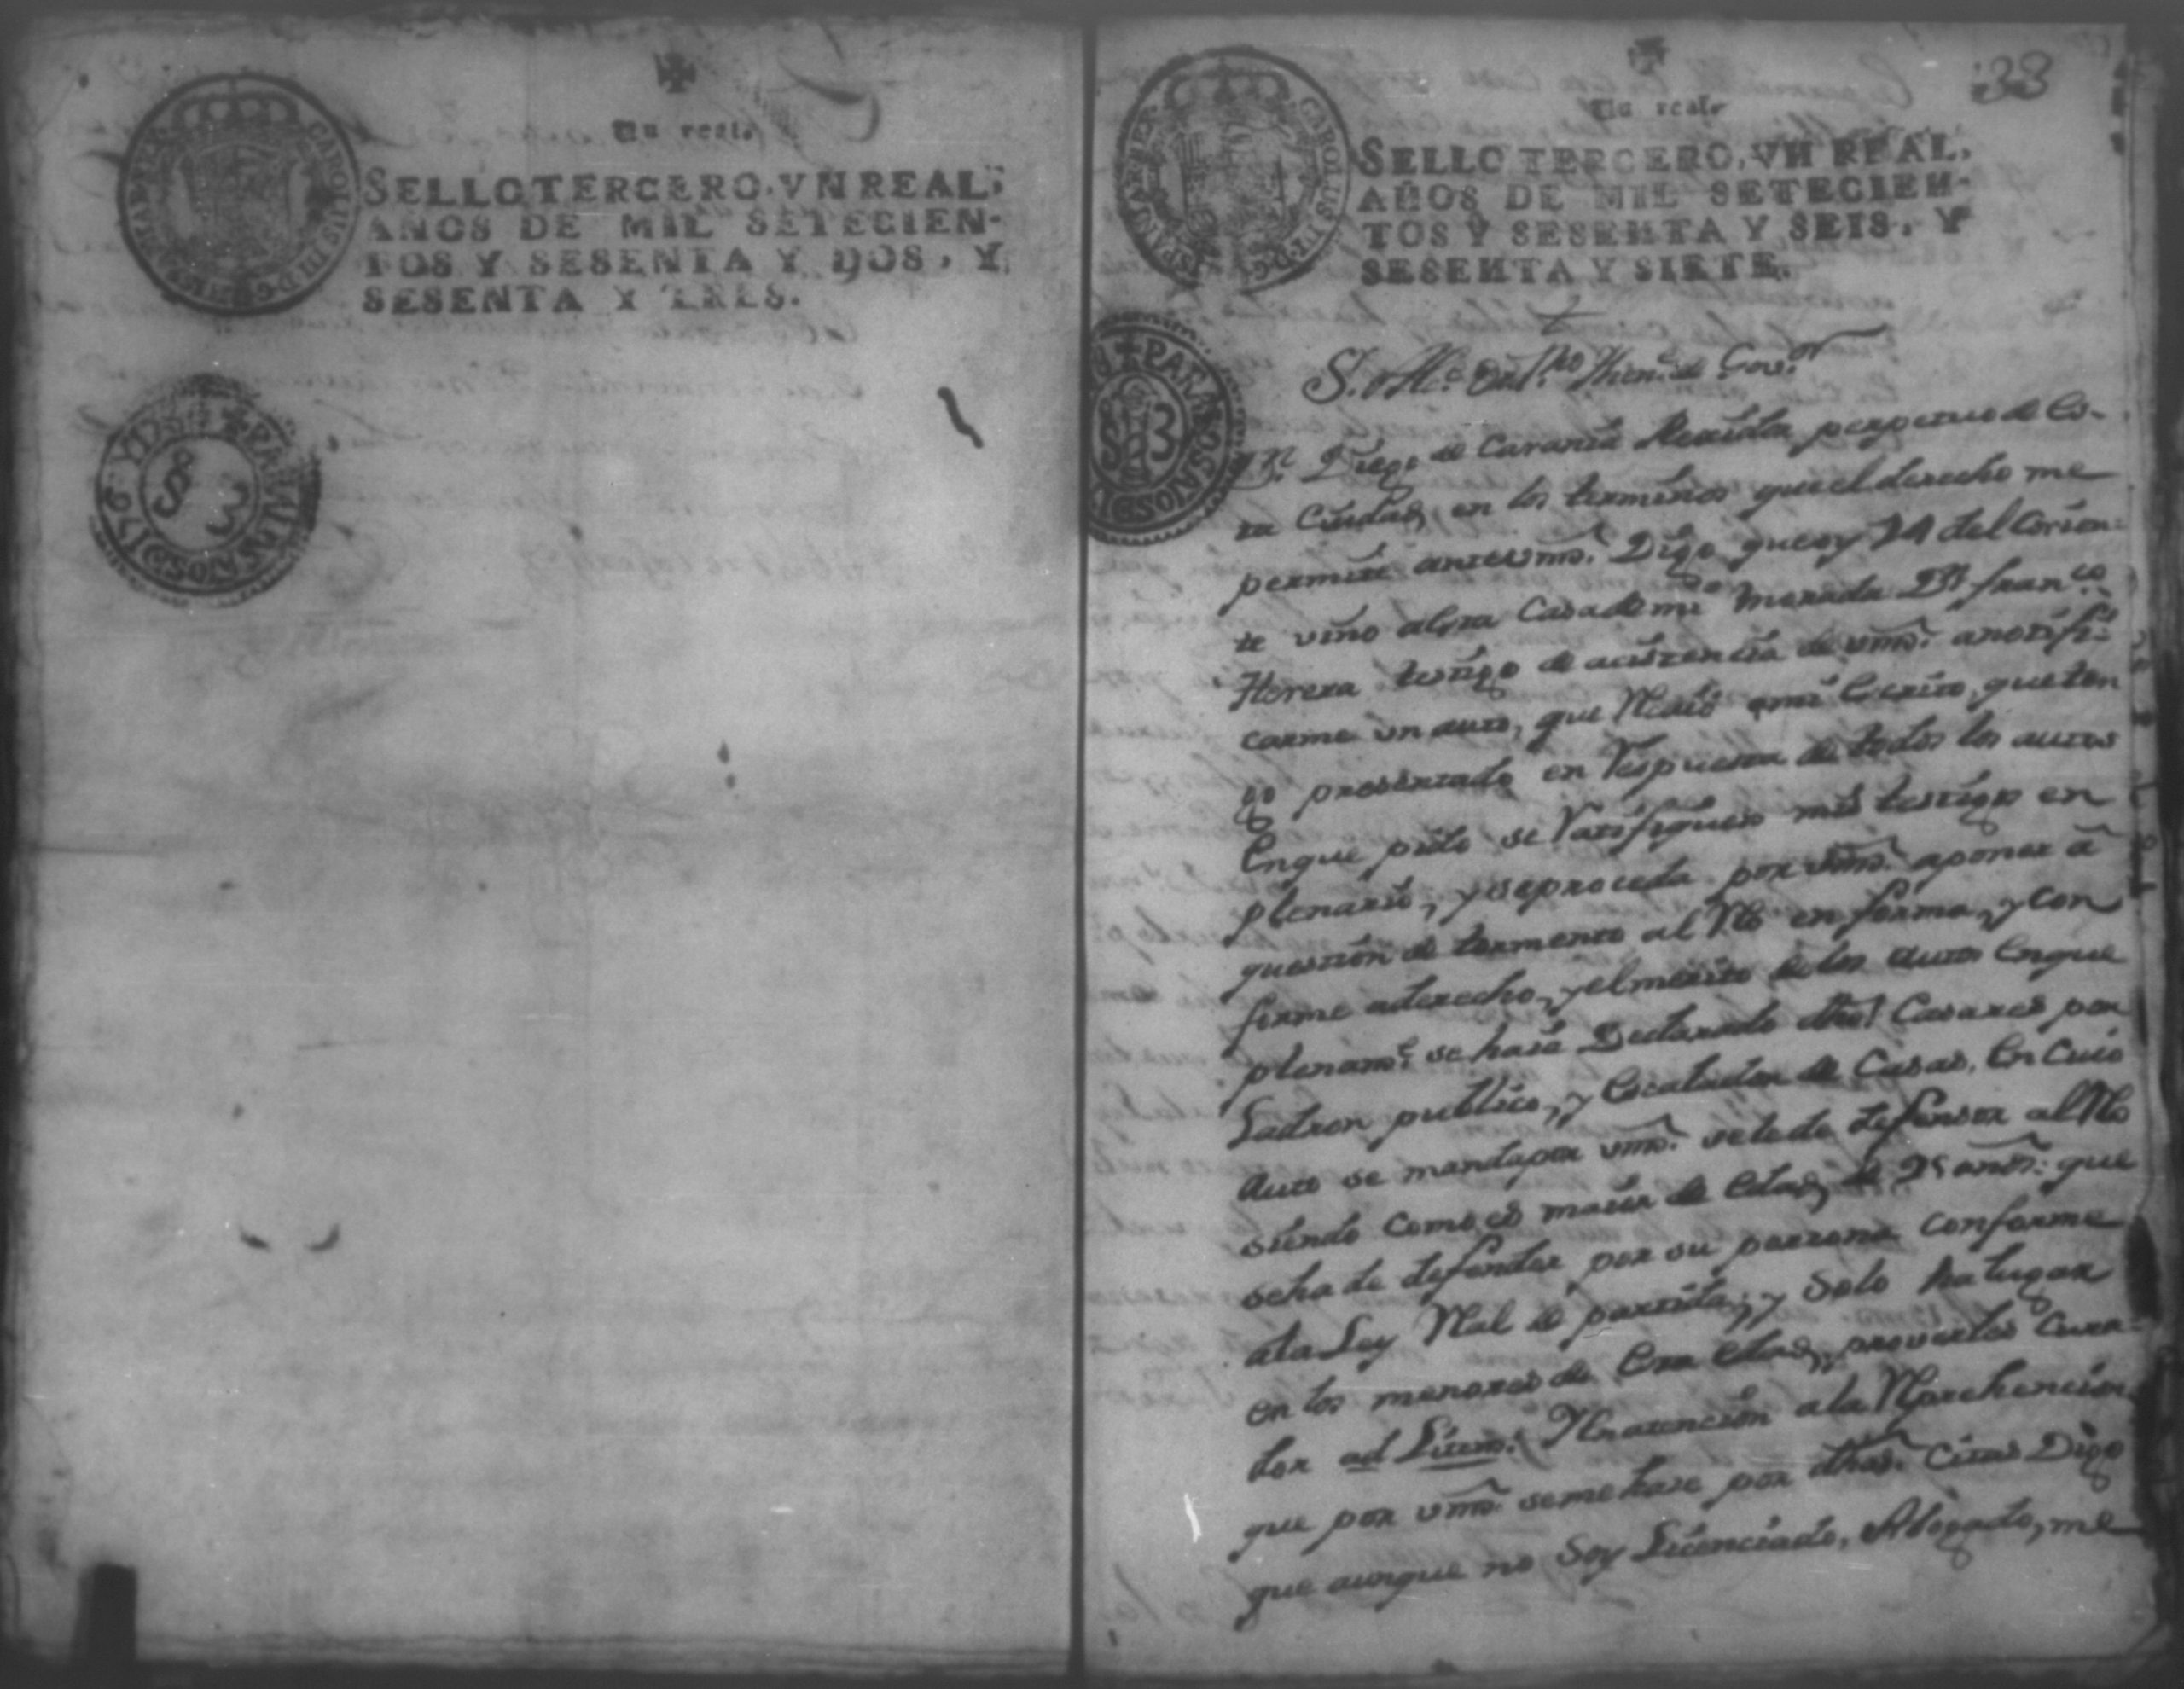 Un real.
SELLO TERCERO, VN REAL,
AÑOS DE MIL SETECIEN-
TOS Y SESENTA Y DOS, Y
SESENTA Y TRES.
33
Un real
SELLO TERCERO, VN REAL,
AÑOS DE MIL SETECIEN-
TOS Y SESENTA Y SEIS, Y
SESENTA Y SIETE.
Dn. Diego de Caravia Rexidor perpetuo de Es-
ta Ciudad, en los terminos que el derecho me
permite ante vmd. Digo que oy 14 del Corien-
te vino a esta Casa de mi morada Dn. franco.
Herera testigo de acistencia de vmd. a notifi-
carme un auto, que Recaió a mi Escrito, que ten
go presentado en Respuesta de todos los autos
En que pido se Ratifiquen mis testigos en
plenario, y se proceda por vmd. a poner â
question de tormento al Reo en forma, y con
forme a derecho, y el merito de los autos En que
plenamte. se haia Declarado dho. Casares por
Ladron publico, y Escalador de Casas, En Cuio
Auto se manda por vmd. se le de defensor al Reo
siendo como es maior de Edad, de 25 años. que
se ha de defender por su persona conforme
a la Ley Real de partida, y solo ha lugar
en los menores de Esta Edad, proverles Cura-
dor ad Litem. Y En atencion a la Reprehencion
que por vmd. se me hase por dhas. Citas Digo
que aunque no soy Licenciado, Abogado, me